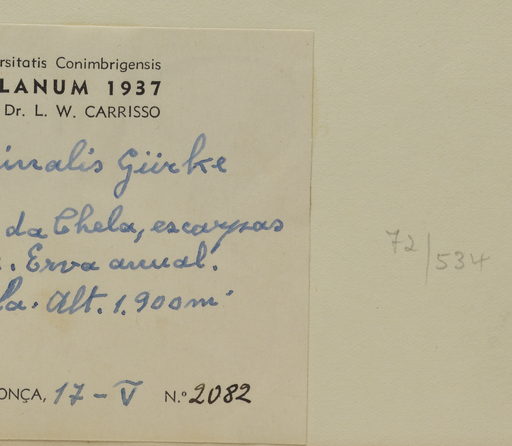 rsitatis Conimbrigensis
LANUM 1937
Dr. L. W. CARRISSO
inalis Gürke
da Chela, escarpas
. Erva anual.
la. Alt. 1.900m
72/534
ONÇA, 17-V N.º 2082